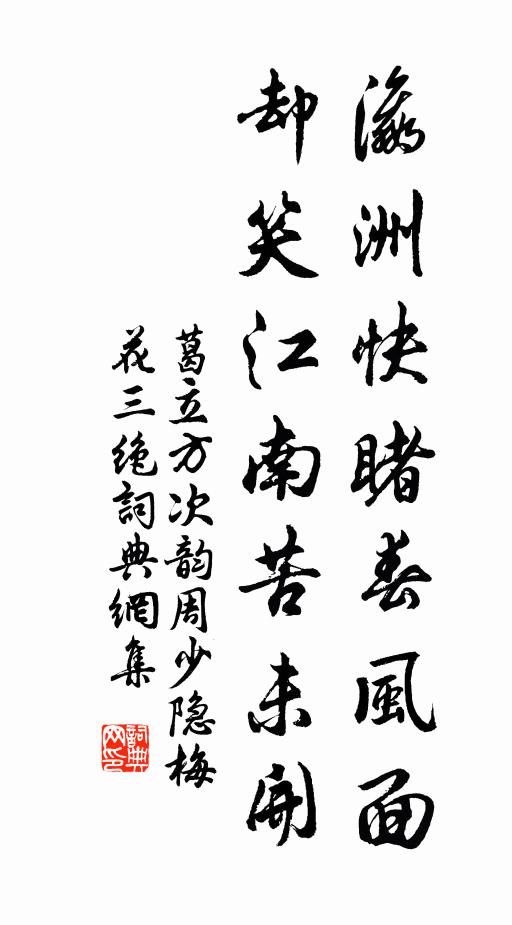 瀛洲快睹春風面
却笑江南苦未開
葛立方次韵周少隐梅
花三絶詞典網集
詞典网印